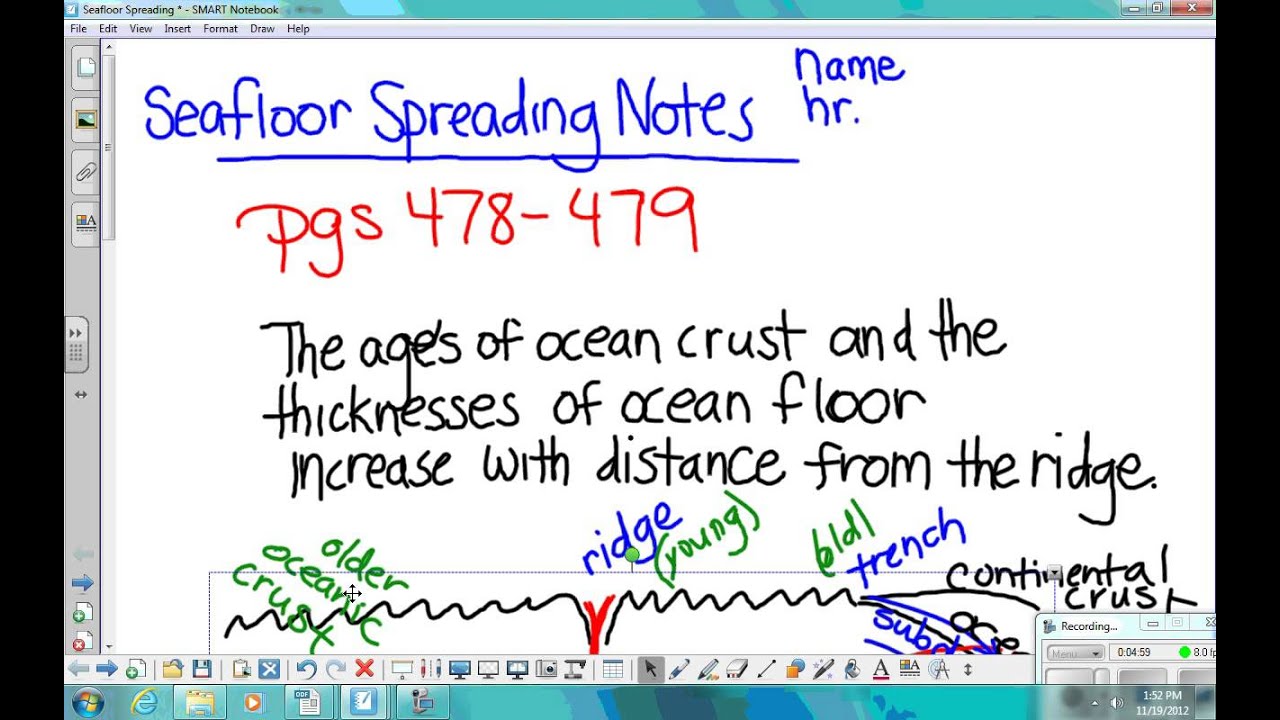 Seafloor Spreading * - SMART Notebook
File Edit View Insert Format Draw Help
name
hr.
Seafloor Spreading Notes
pgs 478-479
The ages of ocean crust and the
thicknesses of ocean floor
increase with distance from the ridge.
older
oceanic
crust
ridge
(young)
trench
continental
crust
Recording...
Menu
0:04:59
8.0
1:52 PM
11/19/2012